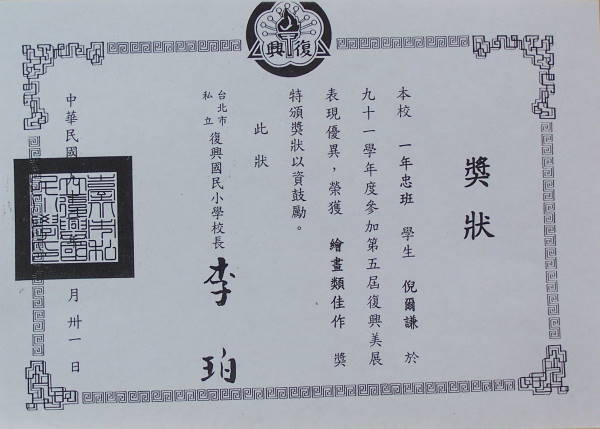 復興
獎狀
本校 一年忠班 學生 倪爾謙 於
九十一學年度參加第五屆復興美展
表現優異，榮獲 繪畫類佳作 獎
特頒獎狀以資鼓勵。
此狀
台北市
私立
復興國民小學校長
李珀
中華民國
月卅一日